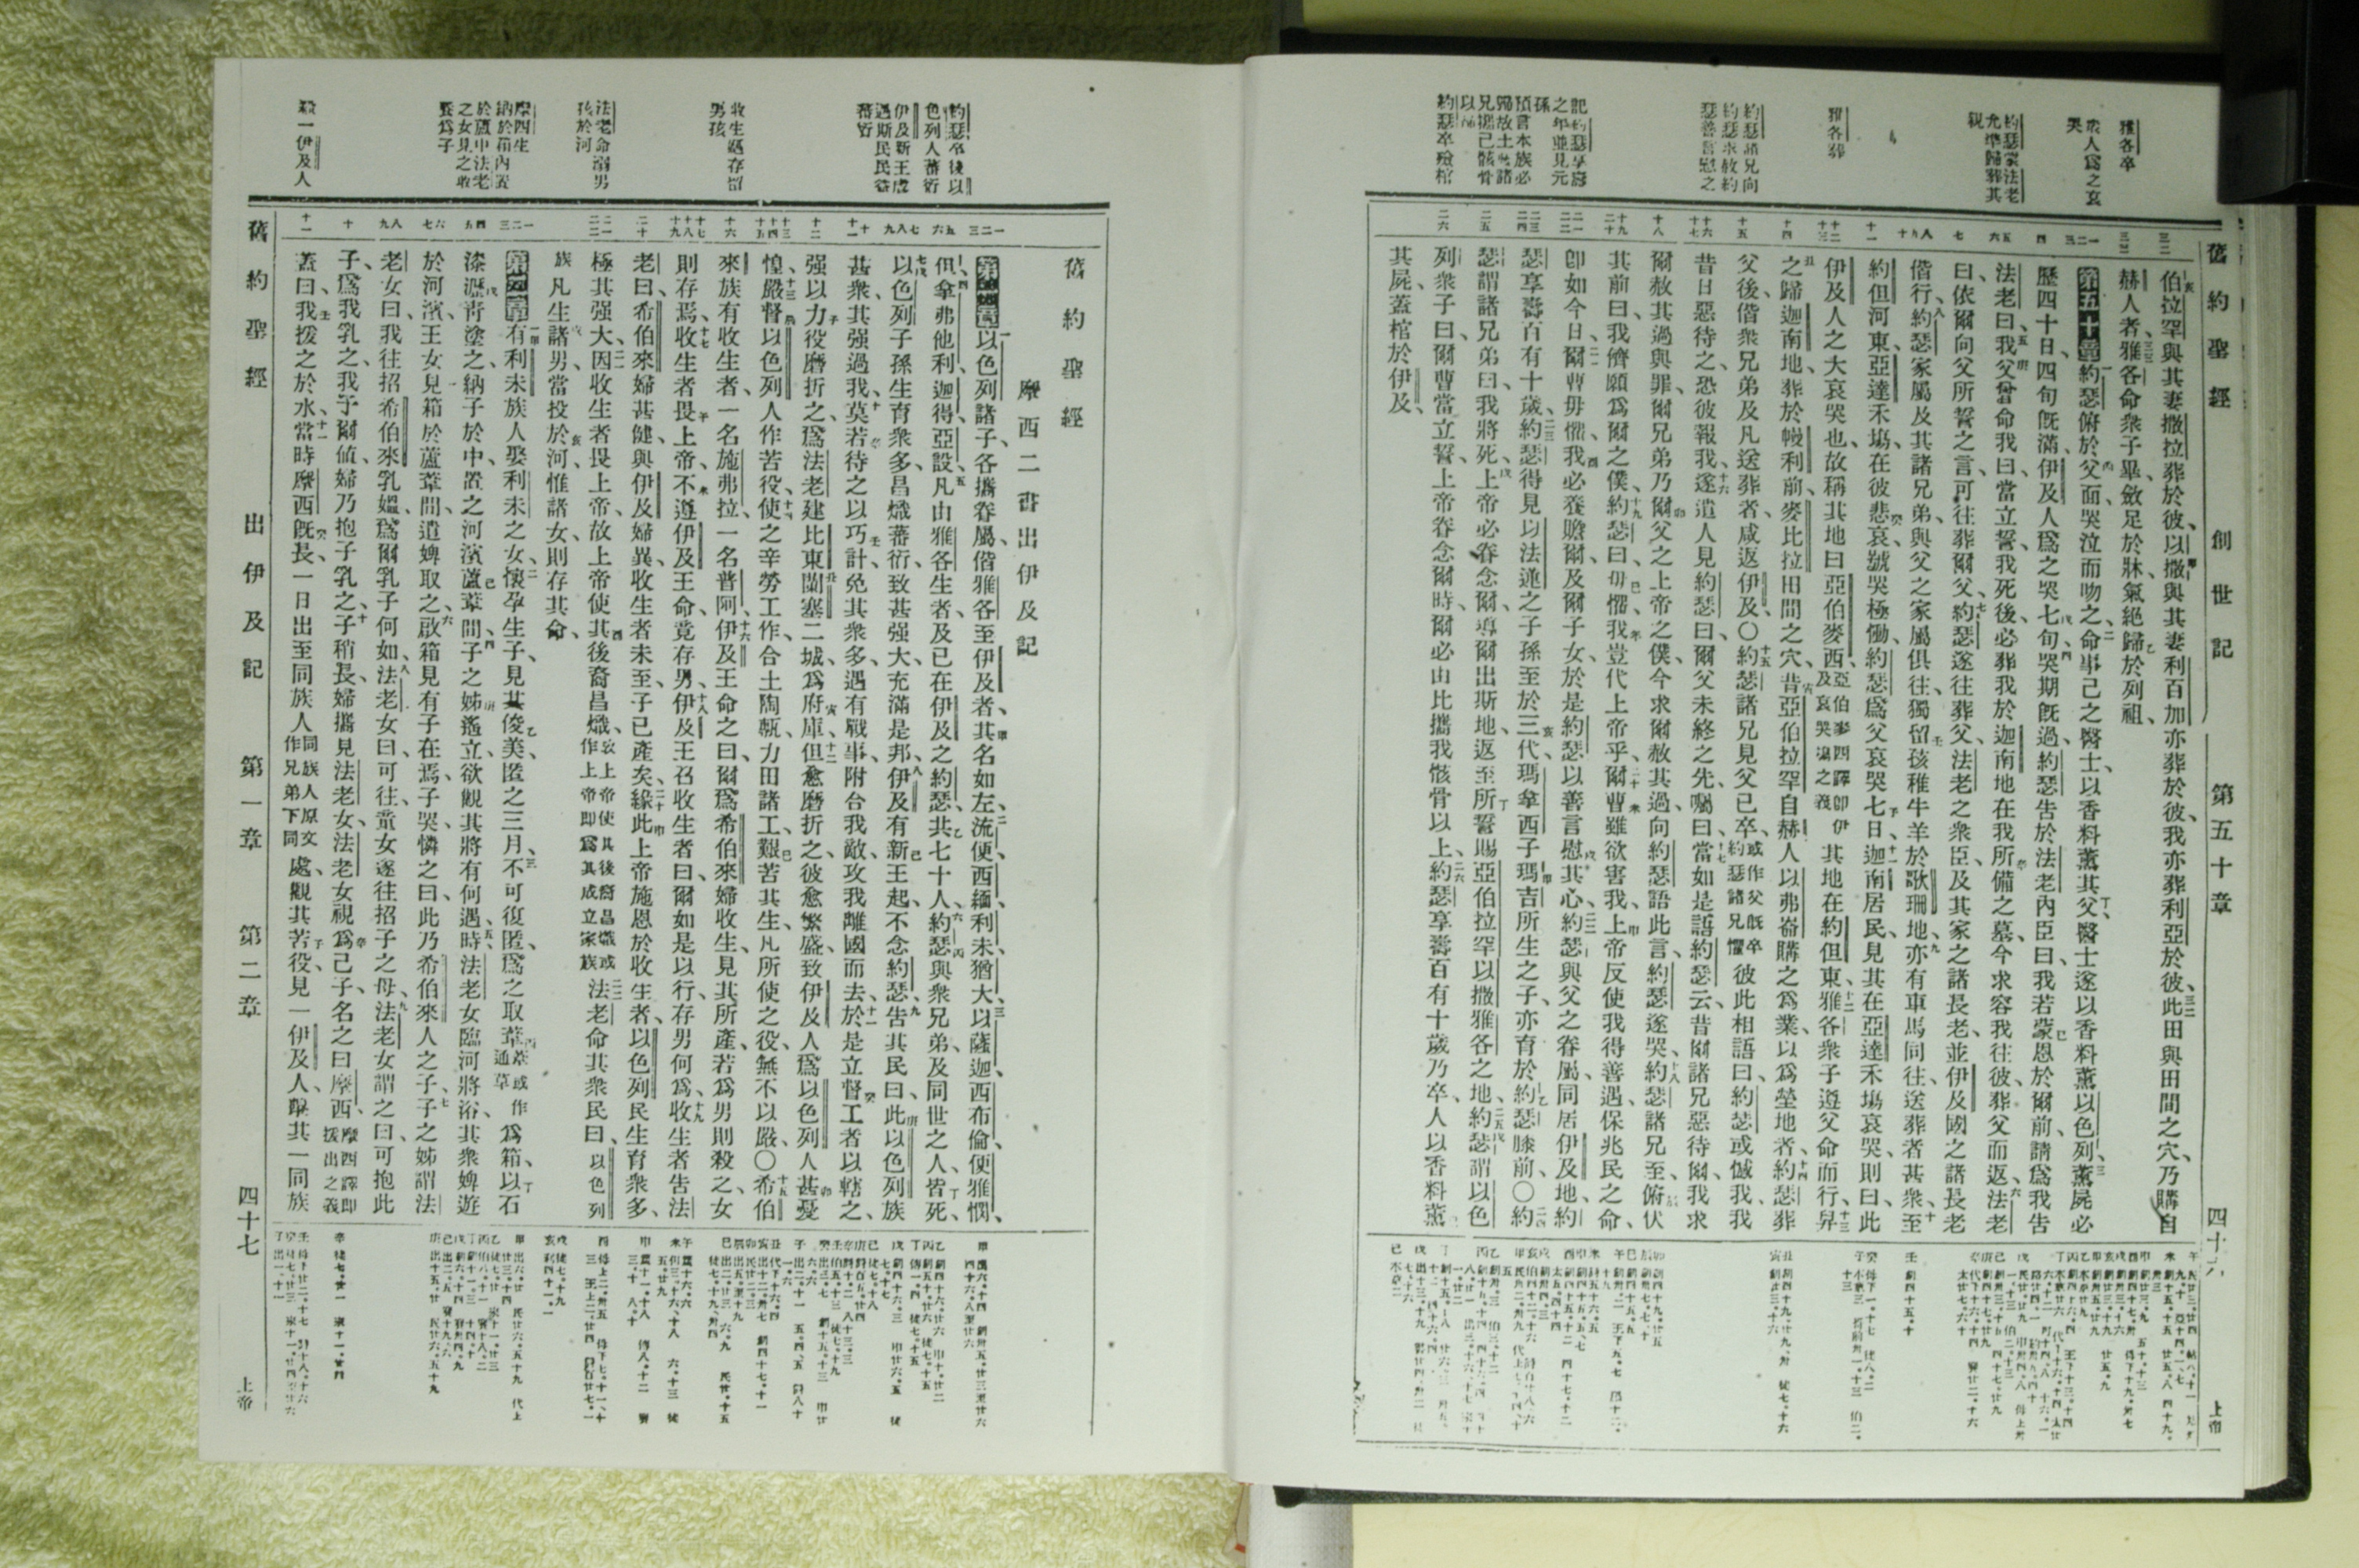 舊約聖經　創世記　第五十章　四十六　上帝
雅各卒
衆人爲之哀
哭
約瑟蒙法老
允準歸葬其
親
雅各葬
約瑟諸兄向
約瑟求赦約
瑟善言慰之
記約瑟享壽
之年並見元
孫
預言本族必
歸故土囑諸
兄攜己骸骨
以
約瑟卒殮棺
伯拉罕與其妻撒拉葬於彼、以撒與其妻利百加亦葬於彼、我亦葬利亞於彼、此田與田間之穴、乃購自
赫人者、雅各命衆子畢、斂足於牀、氣絕歸於列祖、
第五十章約瑟俯於父面、哭泣而吻之、命事己之醫士、以香料薰其父、醫士遂以香料薰以色列、薰屍必
歷四十日、四旬旣滿、伊及人爲之哭七旬、哭期旣過、約瑟告於法老內臣曰、我若蒙恩於爾前、請爲我告
法老曰、我父曾命我曰、當立誓、我死後、必葬我於迦南地、在我所備之墓、今求容我往彼葬父而返、法老
曰、依爾向父所誓之言、可往葬爾父、約瑟遂往葬父、法老之衆臣、及其家之諸長老、並伊及國之諸長老
偕行、約瑟家屬及其諸兄弟、與父之家屬俱往、獨留孩稚牛羊於歌珊地、亦有車馬同往、送葬者甚衆、至
約但河東、亞達禾塲、在彼悲哀號哭極慟、約瑟爲父哀哭七日、迦南居民、見其在亞達禾塲哀哭、則曰、此
伊及人之大哀哭也、故稱其地曰亞伯麥西、亞伯麥西譯卽伊及哀哭塲之義其地在約但東、雅各衆子遵父命而行、舁
之歸迦南地、葬於幔利前、麥比拉田間之穴、昔亞伯拉罕自赫人以弗崙購之爲業、以爲塋地者、約瑟葬
父後、偕衆兄弟及凡送葬者、咸返伊及、〇約瑟諸兄見父已卒、或作父旣卒約瑟諸兄懼彼此相語曰、約瑟或憾我、我
昔日惡待之、恐彼報我、遂遣人見約瑟曰、爾父未終之先、囑曰、當如是語約瑟云、昔爾諸兄惡待爾、我求
爾赦其過與罪、爾兄弟乃爾父之上帝之僕、今求爾赦其過、向約瑟語此言、約瑟遂哭、約瑟諸兄至、俯伏
其前曰、我儕願爲爾之僕、約瑟曰、毋懼、我豈代上帝乎、爾曹雖欲害我、上帝反使我得善遇、保兆民之命、
卽如今日、爾曹毋懼、我必養贍爾及爾子女、於是約瑟以善言慰其心、約瑟與父之眷屬、同居伊及地、約
瑟享壽百有十歲、約瑟得見以法蓮之子孫、至於三代、瑪拿西子瑪吉所生之子、亦育於約瑟膝前、〇約
瑟謂諸兄弟曰、我將死、上帝必眷念爾、導爾出斯地、返至所誓賜亞伯拉罕以撒雅各之地、約瑟謂以色
列衆子曰、爾曹當立誓、上帝眷念爾時、爾必由此攜我骸骨以上、約瑟享壽百有十歲乃卒、人以香料薰
其屍、蓋棺於伊及、
約瑟卒後以
色列人蕃衍
伊及新王虐
遇斯民民益
蕃衍
收生媼存留
男孩
法老命溺男
孩於河
摩西生
納於箱內置
於蘆中法老
之女見之收
養爲子
殺一伊及人
舊約聖經
摩西二書出伊及記
第一章以色列諸子、各攜眷屬、偕雅各至伊及者、其名如左、流便、西緬、利未、猶大、以薩迦、西布倫、便雅憫、
但、拿弗他利、迦得、亞設、凡由雅各生者、及已在伊及之約瑟、共七十人、約瑟與衆兄弟、及同世之人、皆死、
以色列子孫生育衆多、昌熾蕃衍、致甚强大、充滿是邦、伊及有新王起、不念約瑟、告其民曰、此以色列族
甚衆、其强過我、莫若待之以巧計、免其衆多、遇有戰事、附合我敵、攻我離國而去、於是立督工者以轄之、
强以力役磨折之、爲法老建比東蘭塞二城、爲府庫、但愈磨折之、彼愈繁盛、致伊及人爲以色列人甚憂
惶、嚴督以色列人作苦役、使之辛勞工作、合土陶甎、力田諸工、艱苦其生、凡所使之役、無不以嚴、〇希伯
來族有收生者、一名施弗拉、一名普阿、伊及王命之曰、爾爲希伯來婦收生、見其所產、若爲男則殺之、女
則存焉、收生者畏上帝、不遵伊及王命、竟存男、伊及王召收生者曰、爾如是以行存男何爲、收生者告法
老曰、希伯來婦甚健、與伊及婦異、收生者未至、子已產矣、緣此上帝施恩於收生者、以色列民生育衆多、
極其强大、因收生者畏上帝、故上帝使其後裔昌熾、故上帝使其後裔昌熾或作上帝卽爲其成立家族法老命其衆民曰、以色列
族凡生諸男、當投於河、惟諸女、則存其命、
第二章有利未族人、娶利未之女、懷孕生子、見其俊美、匿之三月、不可復匿、爲之取葦葦或作通草爲箱、以石
漆瀝靑塗之、納子於中、置之河濱蘆葦間、子之姊遙立、欲觀其將有何遇、時法老女臨河將浴、其衆婢遊
於河濱、王女見箱於蘆葦間、遣婢取之、啟箱見有子在焉、子哭、憐之曰、此乃希伯來人之子、子之姊謂法
老女曰、我往招希伯來乳媼、爲爾乳子何如、法老女曰、可往、童女遂往招子之母、法老女謂之曰、可抱此
子、爲我乳之、我予爾値、婦乃抱子乳之、子稍長、婦攜見法老女、法老女視爲己子、名之曰摩西、摩西譯卽援出之義
蓋曰、我援之於水、當時摩西旣長、一日出至同族人同族人原文作兄弟下同處、觀其苦役、見一伊及人、擊其一同族
舊約聖經　出伊及記　第一章　第二章　四十七　上帝